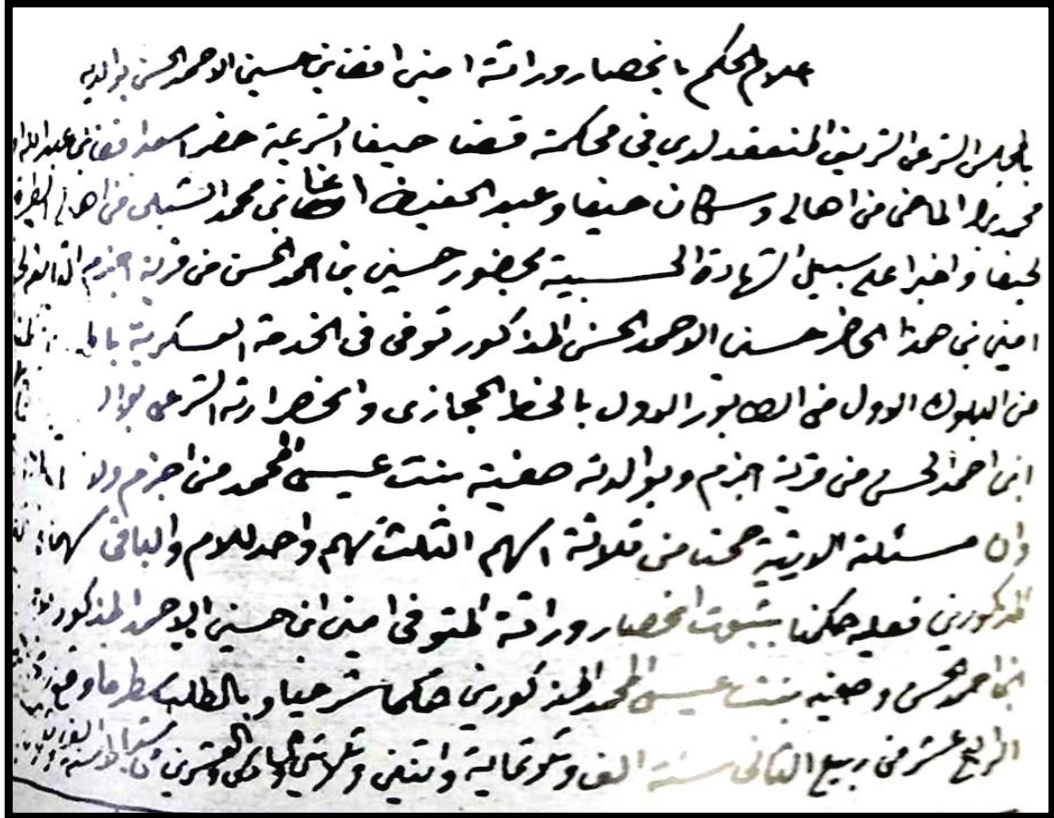 اعلام الحكم بانحصار وراثة امين افندي بن حسين الاحمد الحسن بوالديه
بالمجلس الشرعي الشريف المنعقد لدي في محكمة قضا حيفا الشرعية حضر اسعد افندي بن عبدالله
محمد الماضي من اهالي وسكان حيفا وعبد الحفيظ اغا بن محمد الشبلي من اهالي الطيرة
لحيفا واخبرا على سبيل الشهادة الحسبية بحضور حسين بن احمد الحسن من قرية اجزم التابعة
امين بن هذا الحاضر حسين الاحمد الحسن المذكور توفي في الخدمة العسكرية
من البلوك الاول من الطابور الاول بالخط الحجازي وانحصر ارثه الشرعي
ابن احمد الحسن من قرية اجزم وبوالدته صفية بنت عيسى المحمد من اجزم ولا
وان مسئلته الارثية صحت من ثلاثة اسهم الثلث سهم واحد للام والباقي سهمان
المذكورين فعليه حكمنا بثبوت انحصار وراثة المتوفى امين ابن حسين الاحمد المذكور
ابن احمد الحسن وصفيه بنت عيسى المحمد المذكورين حكما شرعيا وبالطلب سطر ما وقع
الرابع عشر من ربيع الثاني سنة الف وثلاثماية واثنين وثلاثين